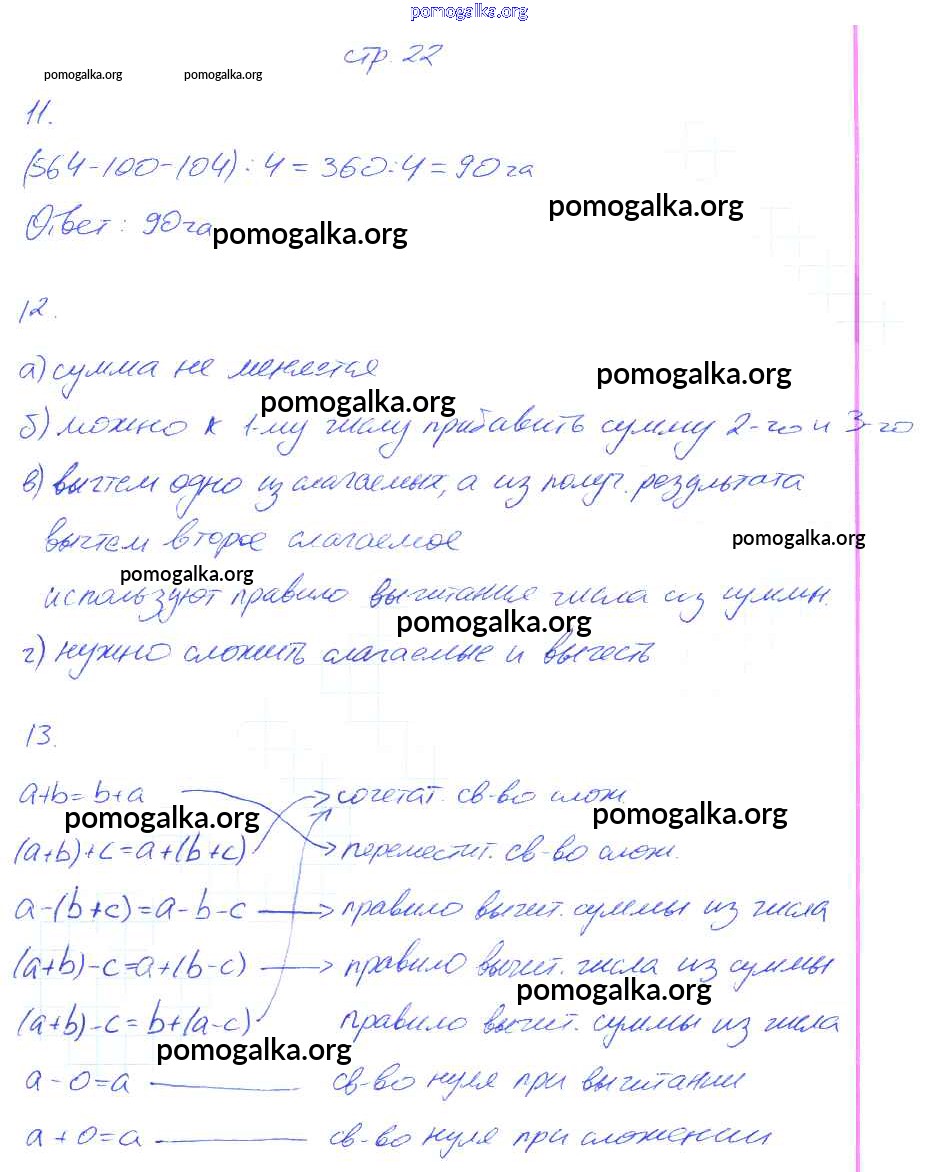 pomogalka.org
стр. 22
pomogalka.org pomogalka.org
11.
(564-100-104) : 4 = 360:4 = 90 га
pomogalka.org
Ответ: 90 га
pomogalka.org
12.
а) сумма не меняется
pomogalka.org
pomogalka.org
б) можно к 1-му числу прибавить сумму 2-го и 3-го
в) вычтем одно из слагаемых, а из получ. результата
вычтем второе слагаемое
pomogalka.org
pomogalka.org
используют правило вычитания числа из суммы.
pomogalka.org
г) нужно сложить слагаемые и вычесть
13.
a+b=b+a сочетат. св-во слож.
pomogalka.org pomogalka.org
(a+b)+c=a+(b+c) переместит. св-во слож.
a-(b+c)=a-b-c правило вычит. суммы из числа
(a+b)-c=a+(b-c) правило вычит. числа из суммы
pomogalka.org
(a+b)-c=b+(a-c) правило вычит. суммы из числа
pomogalka.org
a-0=a св-во нуля при вычитании
a+0=a св-во нуля при сложении